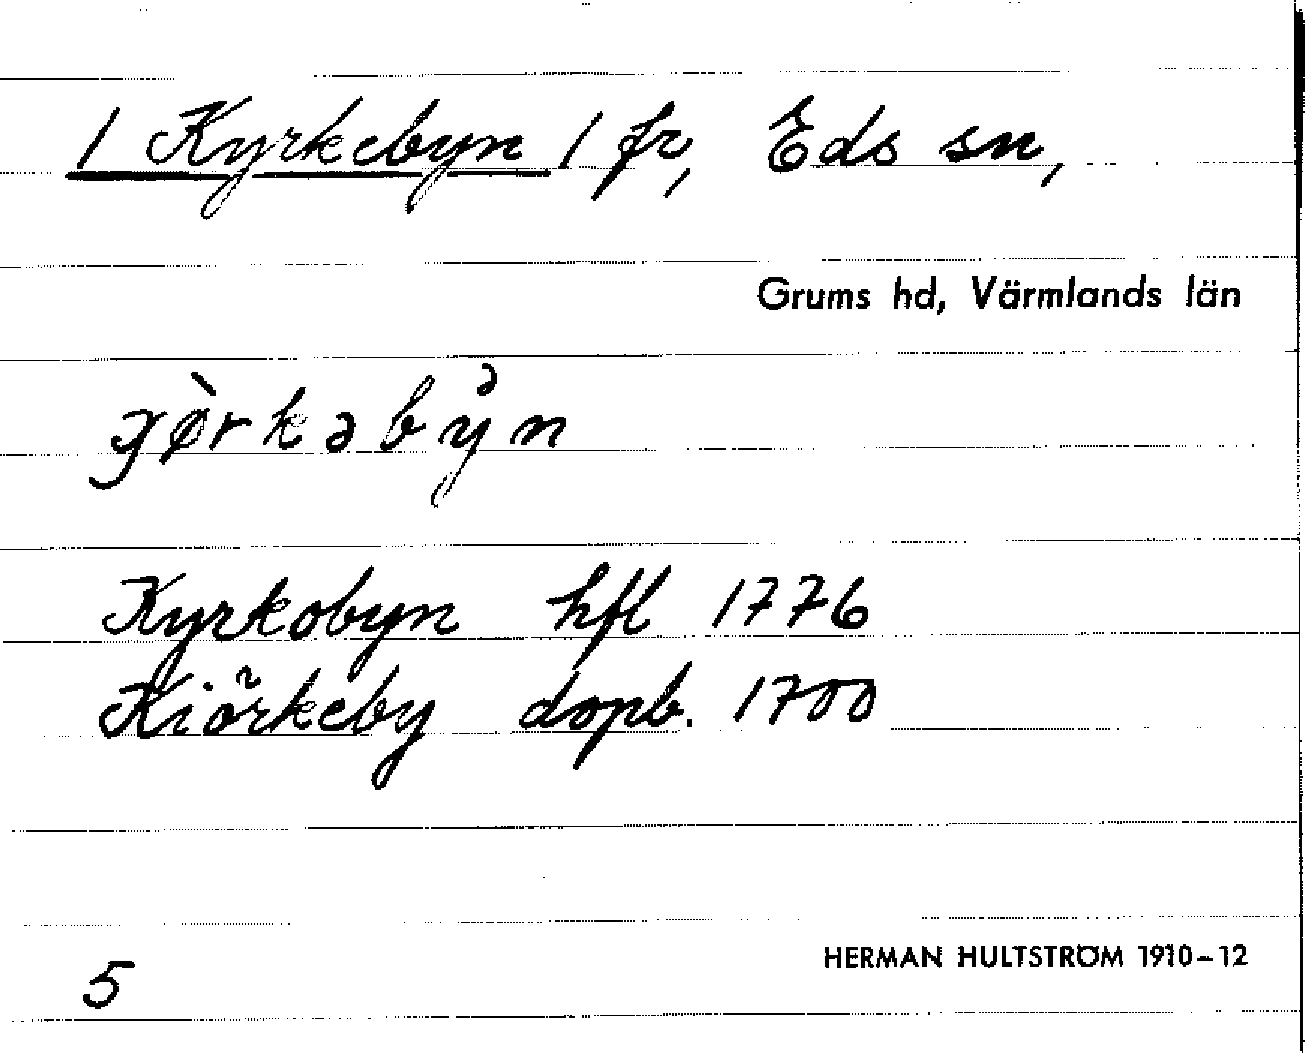 1 Kyrkebyn 1 fr, Eds sn,
Grums hd, Värmlands län
Kyrkobyn hfl 1776
Kiörkeby dopb. 1700
HERMAN HULTSTRÖM 1910-12
5